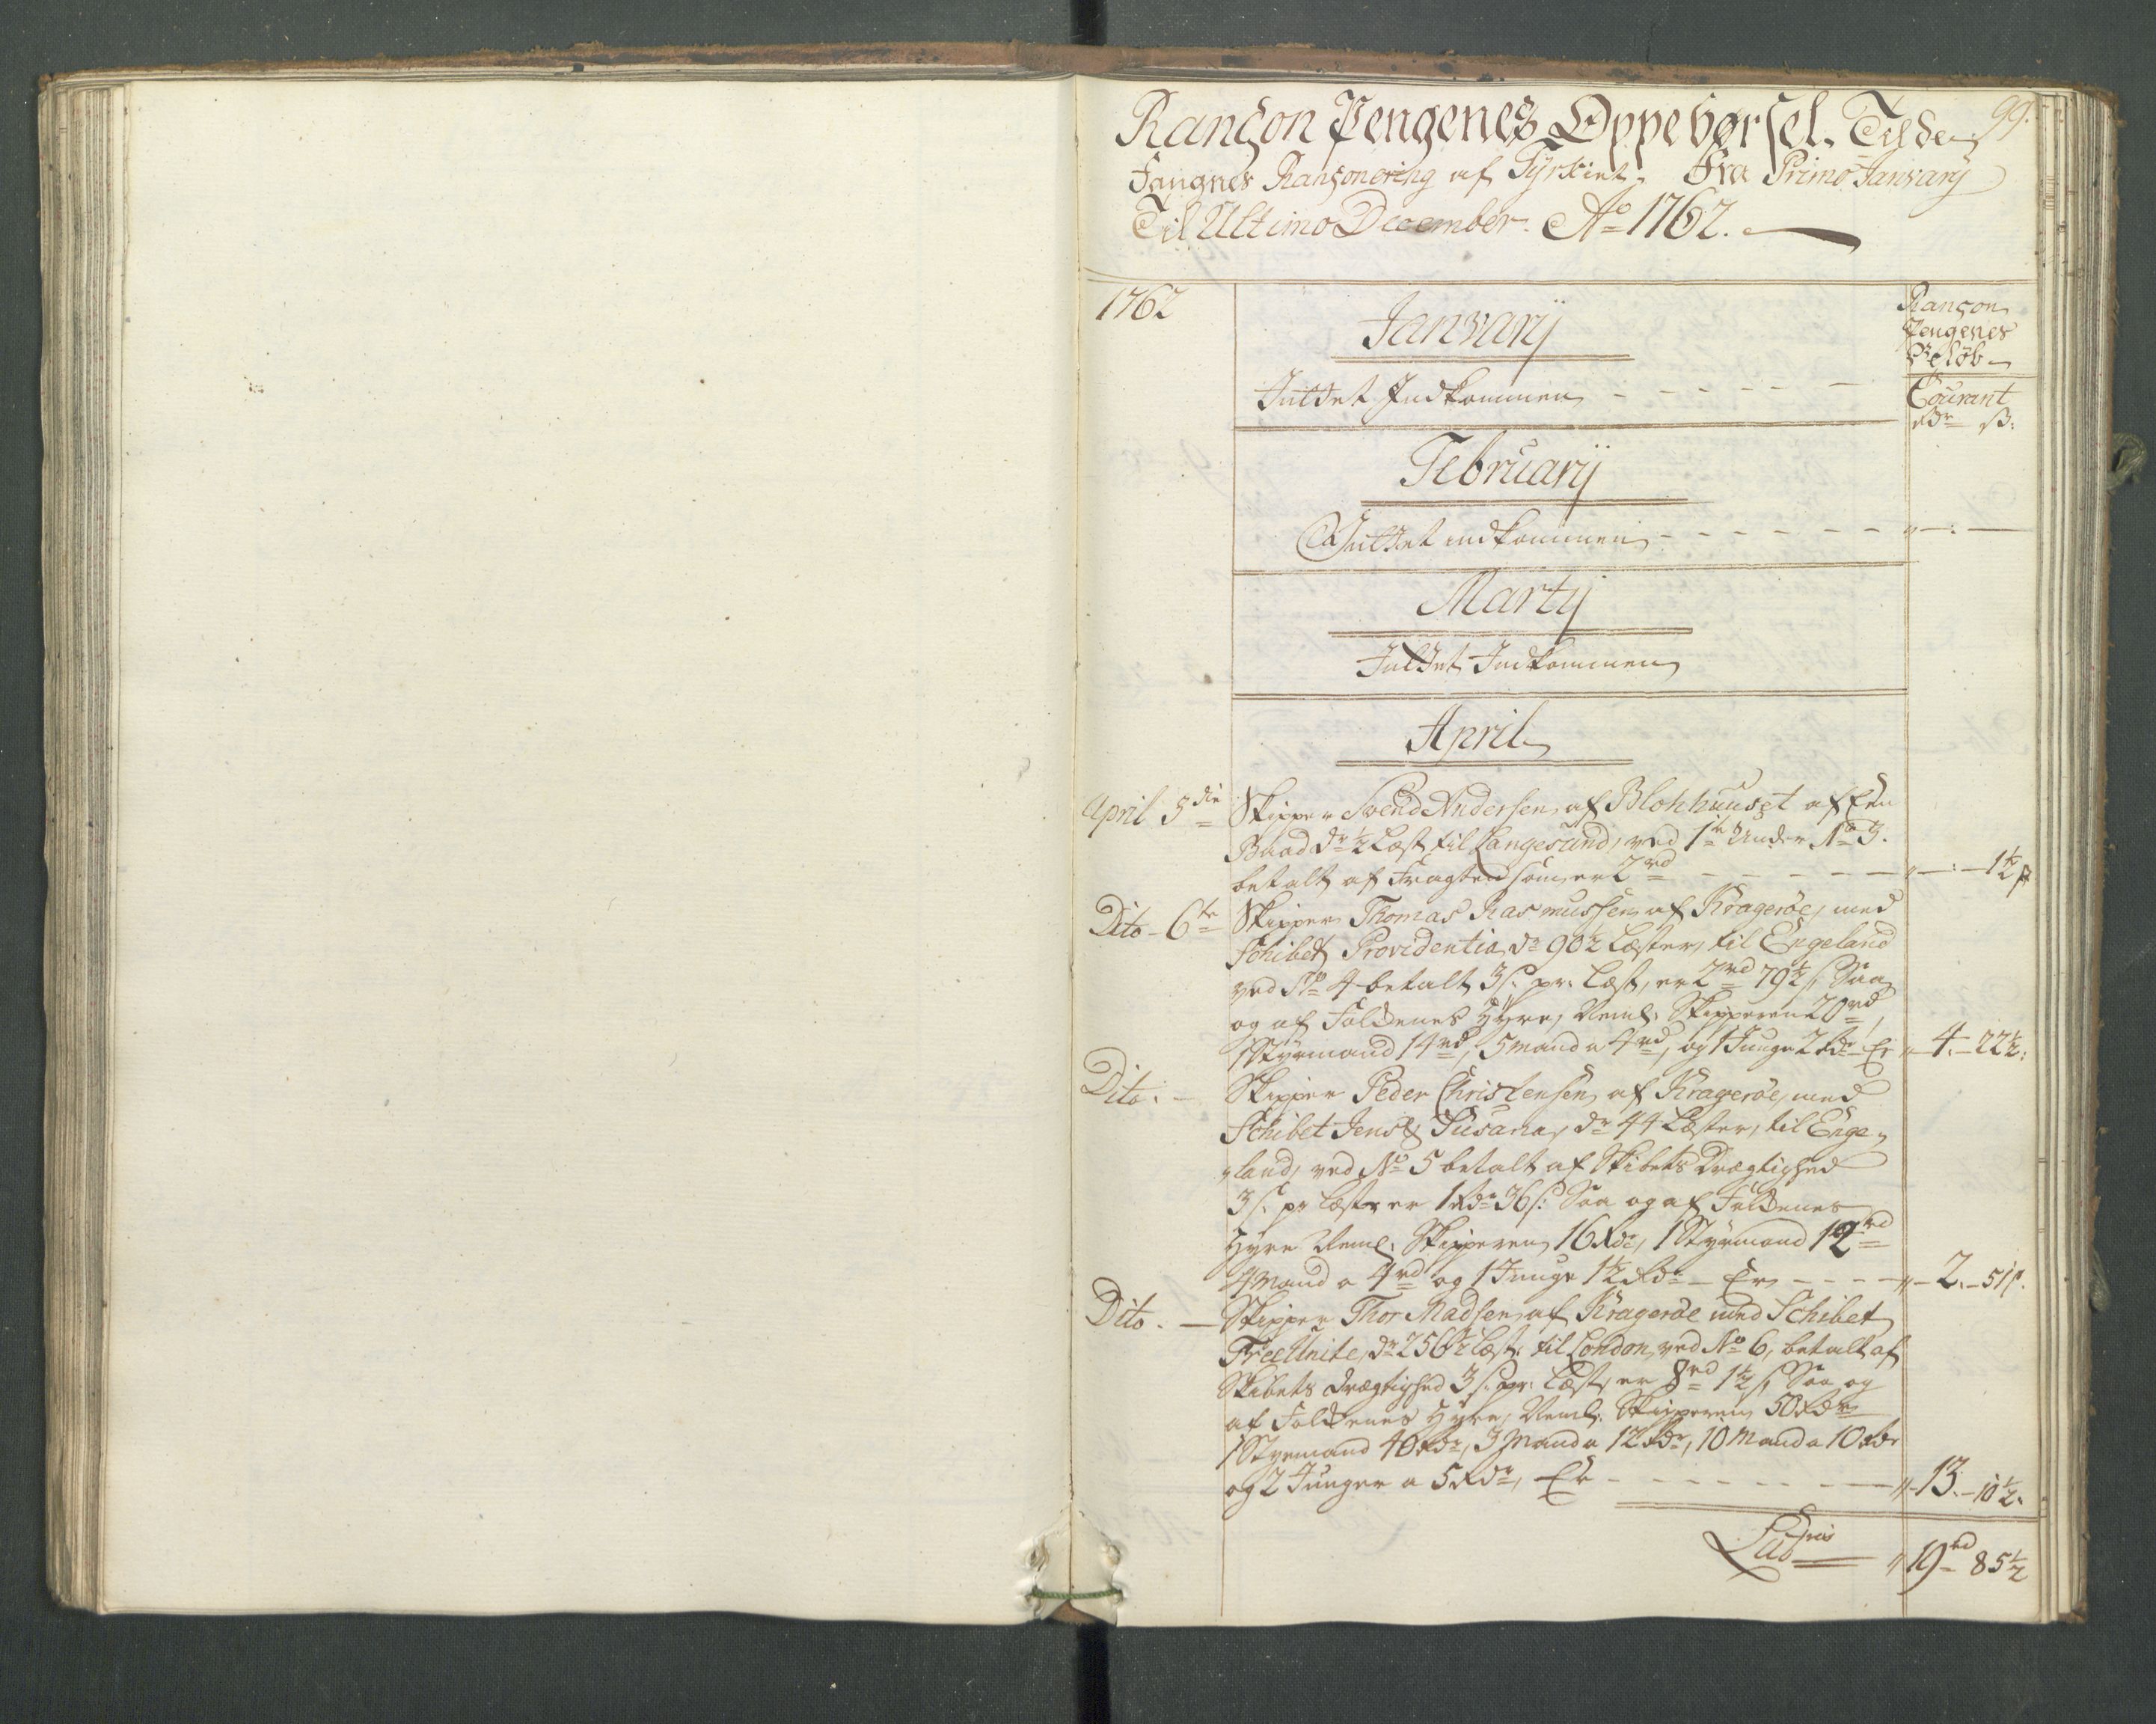 99.
Rançon Pengenes Oppebørsel. Til de
Fangnes Rançonering af Tyrkiet. Fra Primo January
Til Ultimo December Ao 1762.
1762
January
Rançon
Pengenes
Beløb
Intet Indkommen
Courant
rdr ß:
February
Intet indkommen
Marty
Intet Indkommen
April
April 5die Skipper Svend Andersen af Blokhuuset af En
Baad dr ½ Læst til Langesund, ved No 3.
betalt af Fragten som er 2rd - 1½ ß
Dito 6te Skipper Thomas Rasmussen af Kragerøe, med
Schibet Providentia dr 90½ Læster, til Engeland
ved No 4 betalt 3 ß. pr. Læst, er 2rd 79½ ß, Saa
og af Folckenes Hyre, Neml. Skipperen 20rd,
1 Styrmand 14rd, 5 mand a 4rd, og 1 Junge 2 rdr Er 4.-22½.
Dito. Skipper Peder Christensen af Kragerøe, med
Schibet Susana, dr 44 Læster, til Enge-
land, ved No 5 betalt af Skibets Drægtighed
3 ß. pr Læst er 1 rdr 36 ß. Saa og af Folckenes
Hyre Neml. Skipperen 16 rdr, 1 Styrmand 12rd
4 Mand a 4rd og 1 Junge 1½ rdr Er 2.-51 ß.
Dito. Skipper Thor Madsen af Kragerøe med Schibet
Free Unite, dr 256½ Læst. til London, ved No 6, betalt af
Skibets drægtighed 3 ß. pr. Læst, er 8rd 1½ ß, Saa og
af Folckenes Hyre, Neml. Skipperen 50 rdr
1 Styrmand 40 rdr, 3 Mand a 12 rdr, 10 Mand a 10 rdr
og 2 Junger a 5 rdr, Er 13.-10½.
Ladris 19rd 85½